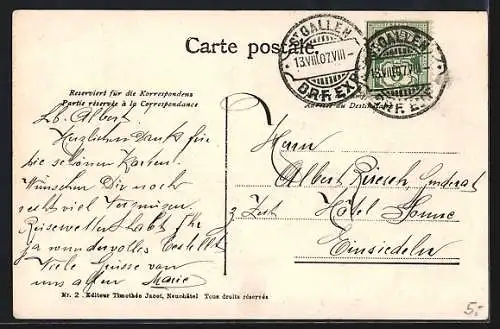 Carte postale.
ST GALLEN
13.VIII.07.VIII-
BRF. EXP.
ST GALLEN
13.VIII.07
BRF. EXP.
Reserviert für die Korrespondenz
Partie réservée à la Correspondance
Lb. Albert!
Herzlichen Dank für
die schönen Karten.
Wünschen Dir noch
recht viel Vergnügen.
Reisewetter habt Ihr
ja wundervolles bestellt
Viele Grüsse von
uns allen Marie
Herrn
Albert Ruesch,
z. Zeit Hôtel Sonne
Einsiedeln
Nr. 2. Editeur Timothée Jacot, Neuchâtel Tous droits réservés
5.-